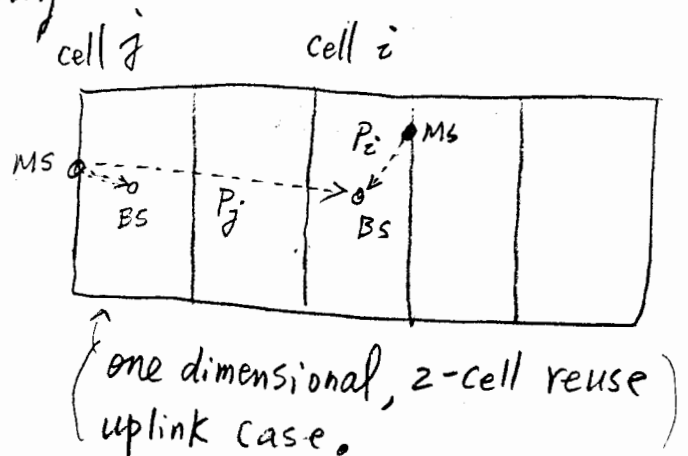 cell j
cell i
MS
P_i
MS
BS
P_j
BS
(one dimensional, 2-cell reuse)
uplink case.